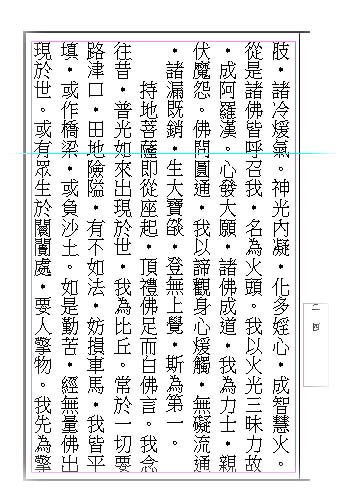 肢‧諸冷煖氣。神光內凝‧化多婬心‧成智慧火。
從是諸佛皆呼召我‧名為火頭。我以火光三昧力故
‧成阿羅漢。心發大願‧諸佛成道‧我為力士‧親
伏魔怨。佛問圓通‧我以諦觀身心煖觸‧無礙流通
‧諸漏既銷‧生大寶燄‧登無上覺‧斯為第一。
持地菩薩即從座起‧頂禮佛足而白佛言。我念
往昔‧普光如來出現於世‧我為比丘。常於一切要
路津口‧田地險隘‧有不如法‧妨損車馬‧我皆平
填‧或作橋梁‧或負沙土。如是勤苦‧經無量佛出
現於世。或有眾生於闤闠處‧要人擎物。我先為擎